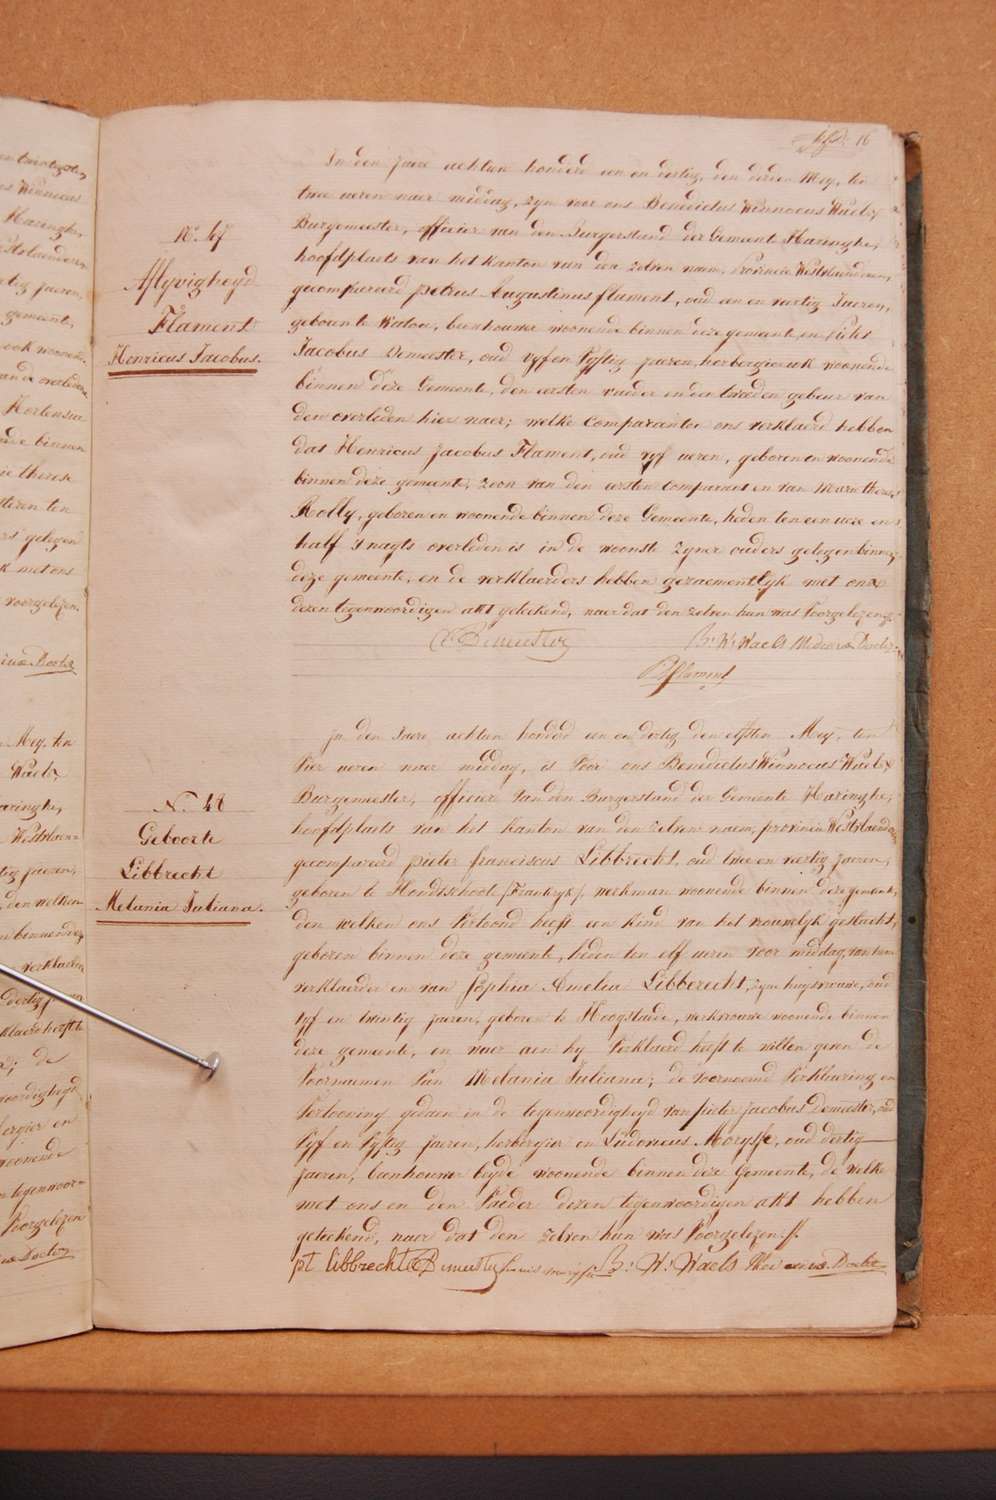 16
In den jare achtien honderd een en dertig, den derden Mey, ten
twee ueren naer middag, zyn voor ons Benedictus Winnocus Waels
Burgemeester, officier van den Burgerstand der Gemeente Haringhe,
hoofdplaets van het kanton van den zelven naem, Provincie Westvlaenderen,
gecompareerd petrus Augustinus flament, oud een en veertig Jaeren,
geboren te Watou, beenhouwer woonende binnen deze gemeente, en Piter
Jacobus Demeester, oud vyf en vyftig jaeren, herbergier ook woonende
binnen deze Gemeente, den eersten vader en den tweeden gebuer van
den overleden hier naer; welke Comparanten ons verklaerd hebben
dat Henricus Jacobus Flament, oud vyf ueren, geboren en woonende
binnen deze gemeente, zoon van den eersten comparant en van Marie Therese
Rolly, geboren en woonende binnen deze Gemeente, heden ten een uere en
half s'nagts overleden is in de woonste zyner ouders gelegen binnen
deze gemeente, en de verklaerders hebben gezaementlyk met ons
dezen tegenwoordigen akt geteekend, naer dat den zelven hun was Voorgelezen
Demeester B: W: Waels Medecinae Doctor
P flament
N.° 47
Aflyvigheyd
Flament
Henricus Jacobus.
Jn den Jaere achtien honderd een en dertig den elfsten Mey, ten
Vier ueren naer middag, is Voor ons Benedictus Winnocus Waels
Burgemeester, officier van den Burgerstand der Gemeente Haringhe,
hoofdplaets van het kanton van den zelven naem, provincie Westvlaenderen
gecompareerd pieter franciscus Libbrecht, oud twee en veertig jaeren,
geboren te Hondtschoote /Frankryk/, werkman woonende binnen deze gemeente,
den welken ons Vertoond heeft een kind van het vrouwelyk geslacht,
geboren binnen deze gemeente, heden ten elf ueren voor middag, van hem
verklaerder en van Sophia Amelia Libbrecht, zyne huysvrouwe, oud
vyf en twintig jaeren, geboren te Hoogstaede, werkvrouwe woonende binnen
deze gemeente, en waer aen hy Verklaerd heeft te willen geven de
Voornamen Van Melania Juliana; de voornoemde Verklaering en
Vertooning gedaen in de tegenwoordigheyd van pieter jacobus Demeester, oud
vyf en vyftig jaeren, herbergier en Ludovicus Moryssse, oud dertig
jaeren, beenhouwer beyde woonende binnen deze Gemeente, de welke
met ons en den Vader dezen tegenwoordigen akt hebben
geteekend, naer dat den zelven hun was Voorgelezen.
pt libbrecht Demeester B: W: Waels Medecinae Doctor
N. 48
Geboorte
Libbrecht
Melania Juliana.